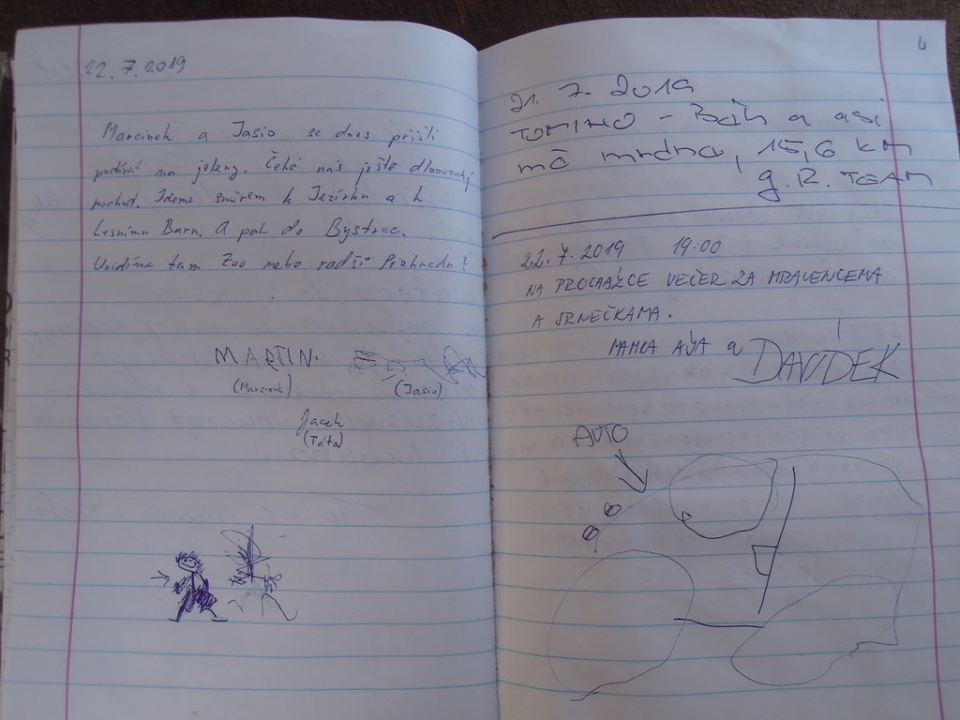 22.7.2019
Marcinek a Jasio se dnes přišli
podívat na jeleny. Čeká nás ještě dlouhý
pochod. Jdeme směrem k Jezírku a k
Lesnímu Baru. A pak do Bystrce.
Uvidíme tam Zoo nebo radši Přehradu?
MARTIN.
(Marcinek)
(Jasio)
Jacek
(Táta)
4
21. 7. 2019
TOMINO - Běh a asi
15,6 KM
g. R. TEAM
22.7.2019 19:00
NA PROCHÁZCE VEČER ZA MRAVENCEMA
A SRNEČKAMA.
MAMKA AJA a DAVÍDEK
AUTO